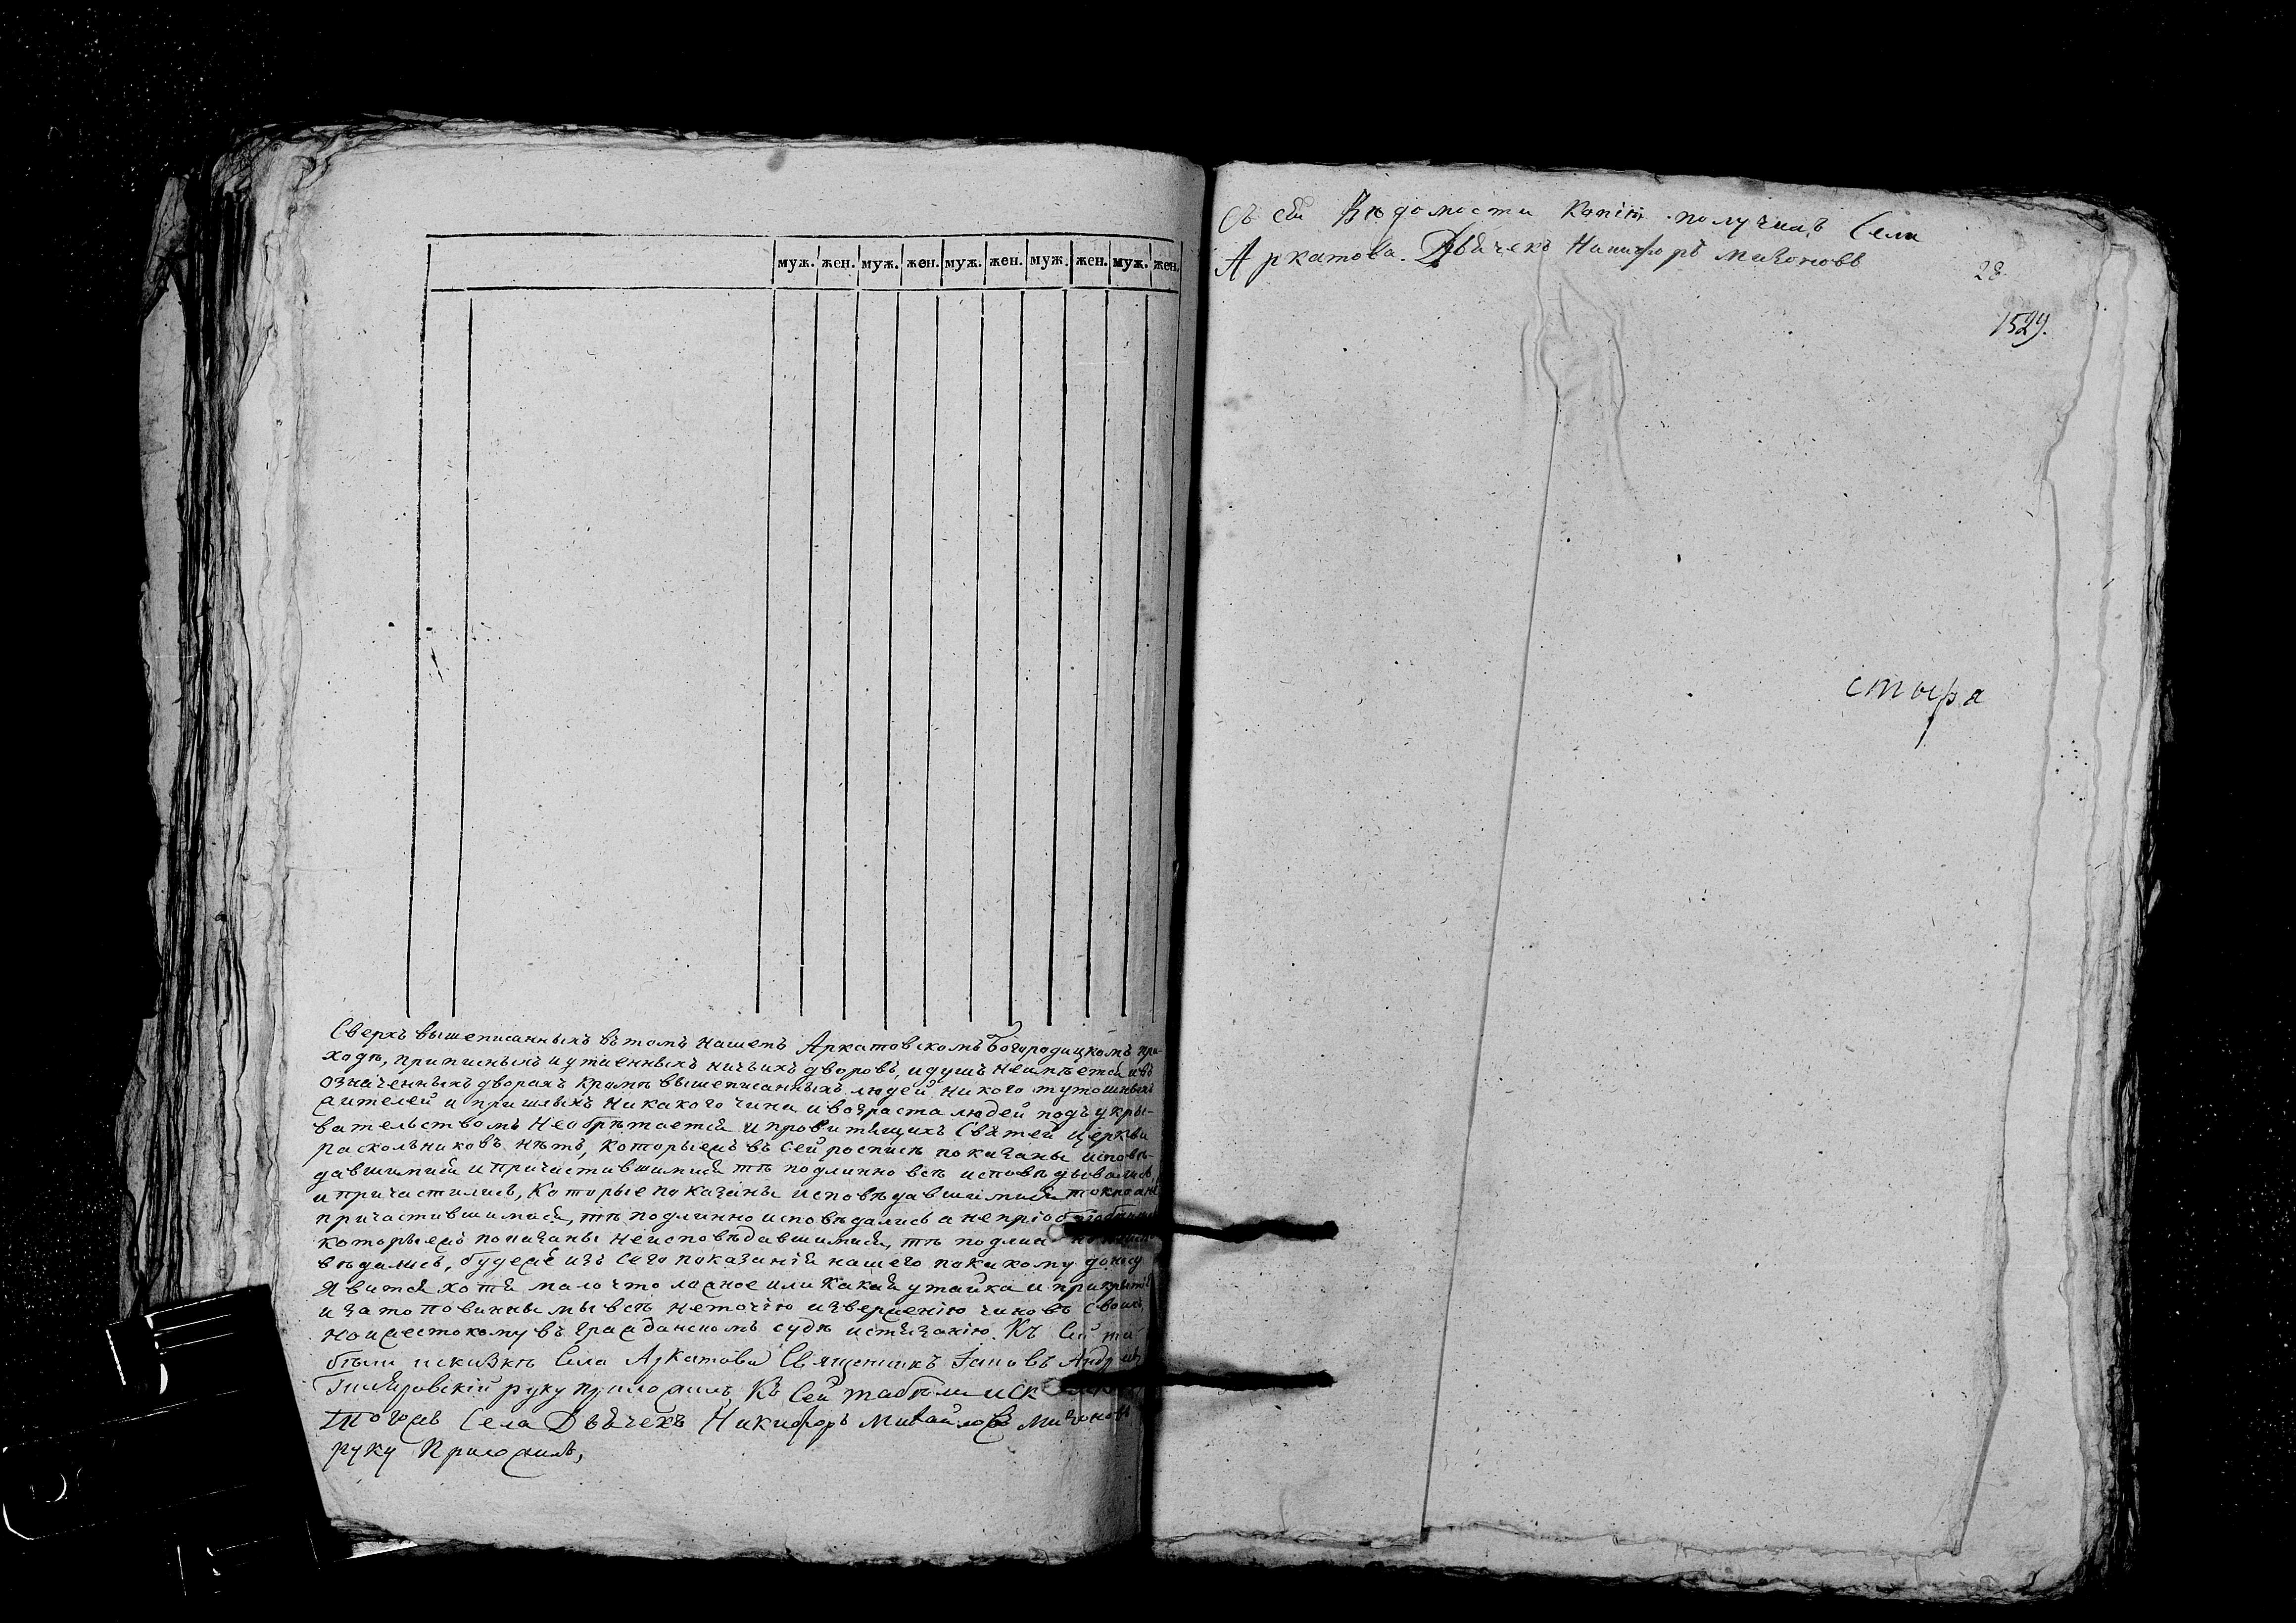 муж. жен. муж. жен. муж. жен. муж. жен. муж. жен.
Сверхъ вышеписанныхъ въ томъ нашемъ Аркатовскомъ Богородицкомъ при-
ходѣ, приписныхъ и утаенныхъ ничьихъ дворовъ, и душъ неимѣется и въ
означенныхъ дворахъ кромѣ вышеписанныхъ людей никого тутошныхъ
жителей и пришлыхъ никакого чина и возраста людей подъ укры-
вательствомъ необрѣтается и противящихъ Святей Церкви
раскольниковъ нѣтъ, которыежъ въ сей росписѣ показаны исповѣ-
давшимися и причастившимися тѣ подлинно всѣ исповѣдывались,
и причастились, которые показаны исповѣдавшимися токмо а не
причастившимися, тѣ подлинно исповѣдались а непріобщ
которыежъ показаны неисповѣдавшимися, тѣ подлин
вѣдались, будежъ изъ сего показанія нашего по какому доносу
явится хотя мало что ложное или какая утайка и прикрытіе
и за то повинны мы всѣ неточію изверженію чиновъ своихъ,
но и жестокому въ гражданскомъ судѣ истязанію. Къ сей та-
бѣли и сказкѣ Села Аркатова Священникъ Іаковъ Андреевъ
руку приложилъ, Къ сей табѣли и ск
тогожъ Села Дьячекъ Никифоръ Михайловъ Мизоновъ
руку приложилъ,
Съ сей Вѣдомости копію получилъ Села
Аркатова. Дьячекъ Никифоръ Мизоновъ
28.
1529.